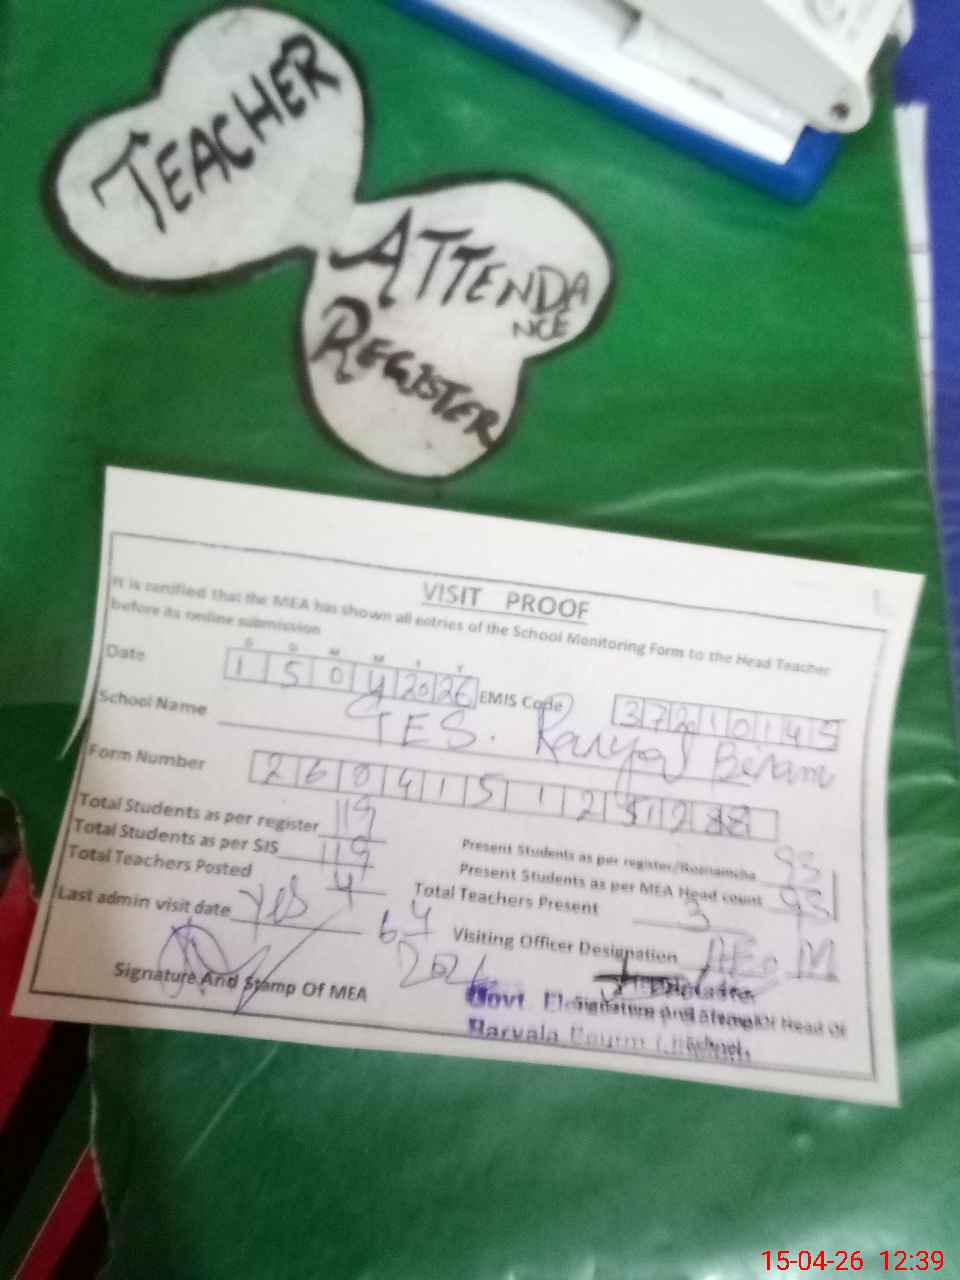 TEACHER
ATTENDA
NCE
REGISTER
VISIT PROOF
It is certified that the MEA has shown all entries of the School Monitoring Form to the Head Teacher
before its online submission
D D M M Y Y
Date 1 5 0 4 20 26 EMIS Code 3 7 2 1 0 1 4 5
School Name GES.
Form Number 2 6 0 4 1 5 1 2
Total Students as per register 119
Total Students as per SIS 119
Present Students as per register/Roznamcha 93
Total Teachers Posted 4
Present Students as per MEA Head count 93
Total Teachers Present 3
Last admin visit date yes 6 4
Visiting Officer Designation AEO M
Signature And Stamp Of MEA
Signature And Stamp Of Head Of
Govt.
15-04-26 12:39